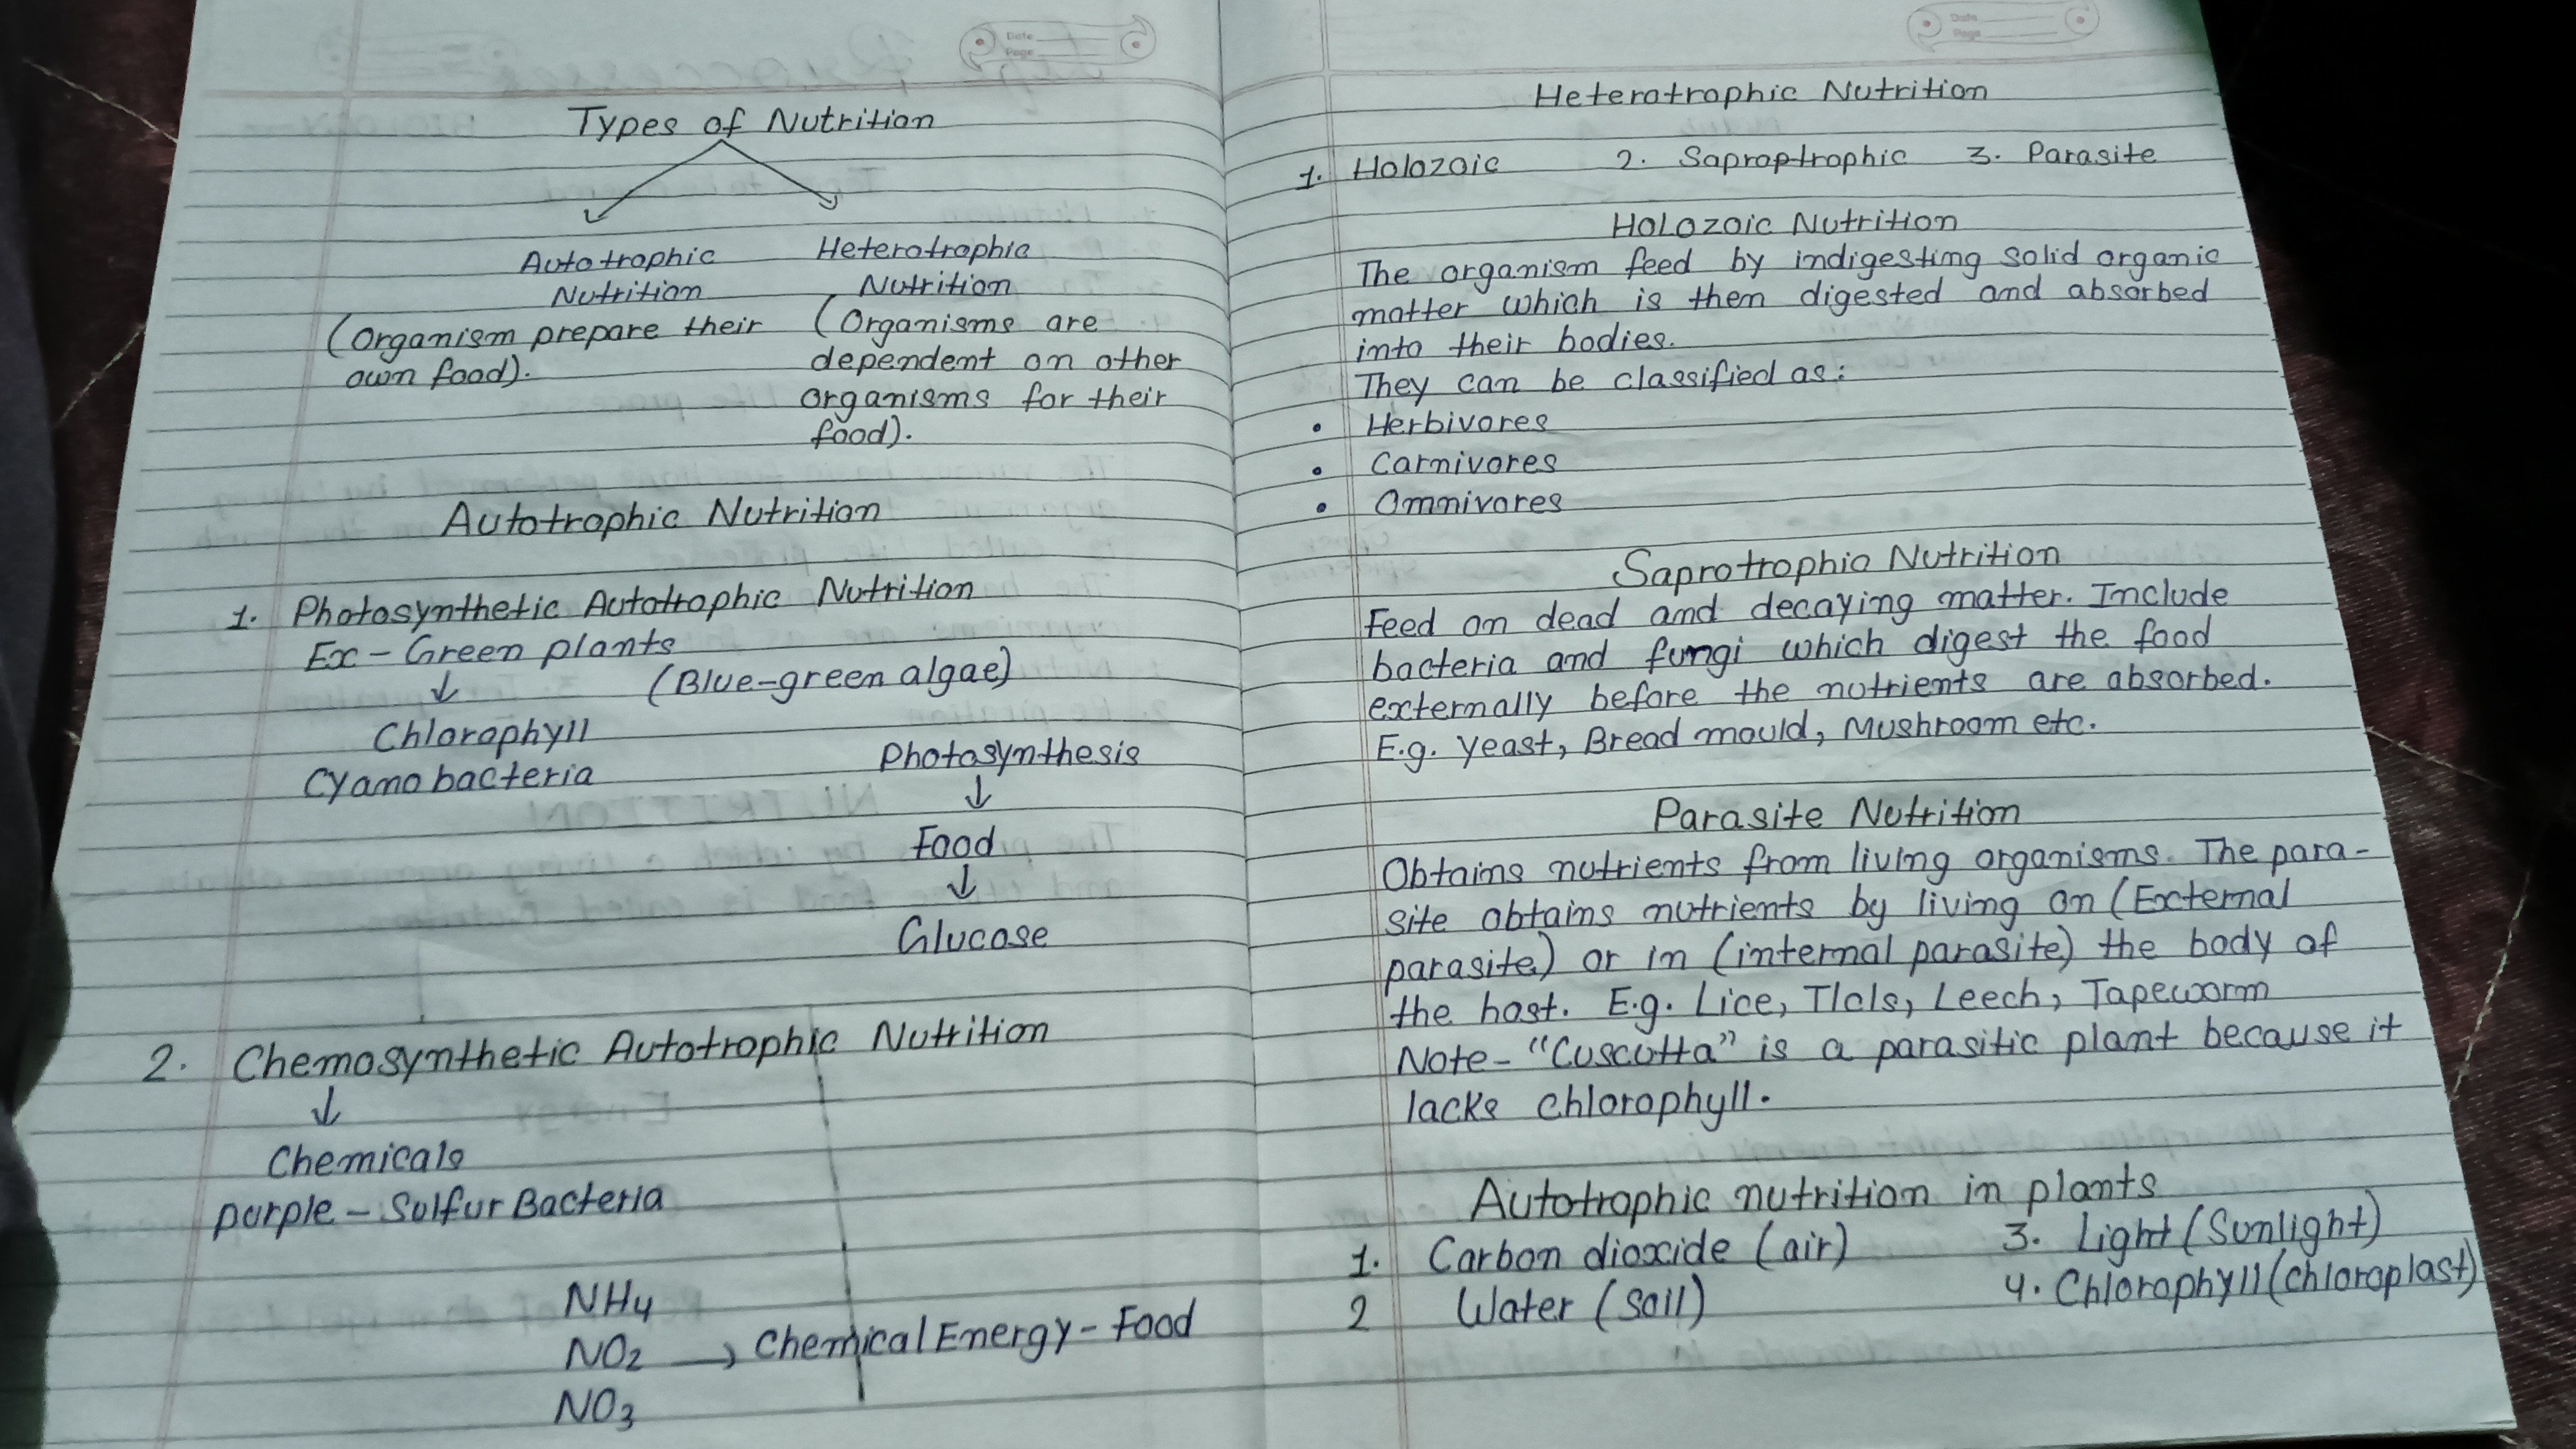 Date
Page
Types of Nutrition
Autotrophic Nutrition
(Organism prepare their own food).
Heterotrophic
Nutrition
(Organisms are
dependent on other
organisms for their
food).
Autotrophic Nutrition
1. Photosynthetic Autotrophic Nutrition
Ex - Green plants
↓ (Blue-green algae)
Chlorophyll
Cyanobacteria
Photosynthesis
↓
Food
↓
Glucose
2. Chemosynthetic Autotrophic Nutrition
↓
Chemicals
purple - Sulfur Bacteria
NH4
NO2 → Chemical Energy - Food
NO3
Date
Page
Heterotrophic Nutrition
1. Holozoic 2. Saproptrophic 3. Parasite
Holozoic Nutrition
The organism feed by indigesting solid organic
matter which is then digested and absorbed
into their bodies.
They can be classified as:
• Herbivores
• Carnivores
• Omnivores
Saprotrophic Nutrition
Feed on dead and decaying matter. Include
bacteria and fungi which digest the food
externally before the nutrients are absorbed.
E.g. Yeast, Bread mould, Mushroom etc.
Parasite Nutrition
Obtains nutrients from living organisms. The para-
site obtains nutrients by living on (External
parasite) or in (internal parasite) the body of
the host. E.g. Lice, Leech, Tapeworm
Note- "Cuscutta" is a parasitic plant because it
lacks chlorophyll.
Autotrophic nutrition in plants
1. Carbon dioxide (air) 3. Light (Sunlight)
2 Water (soil) 4. Chlorophyll (chloroplast)